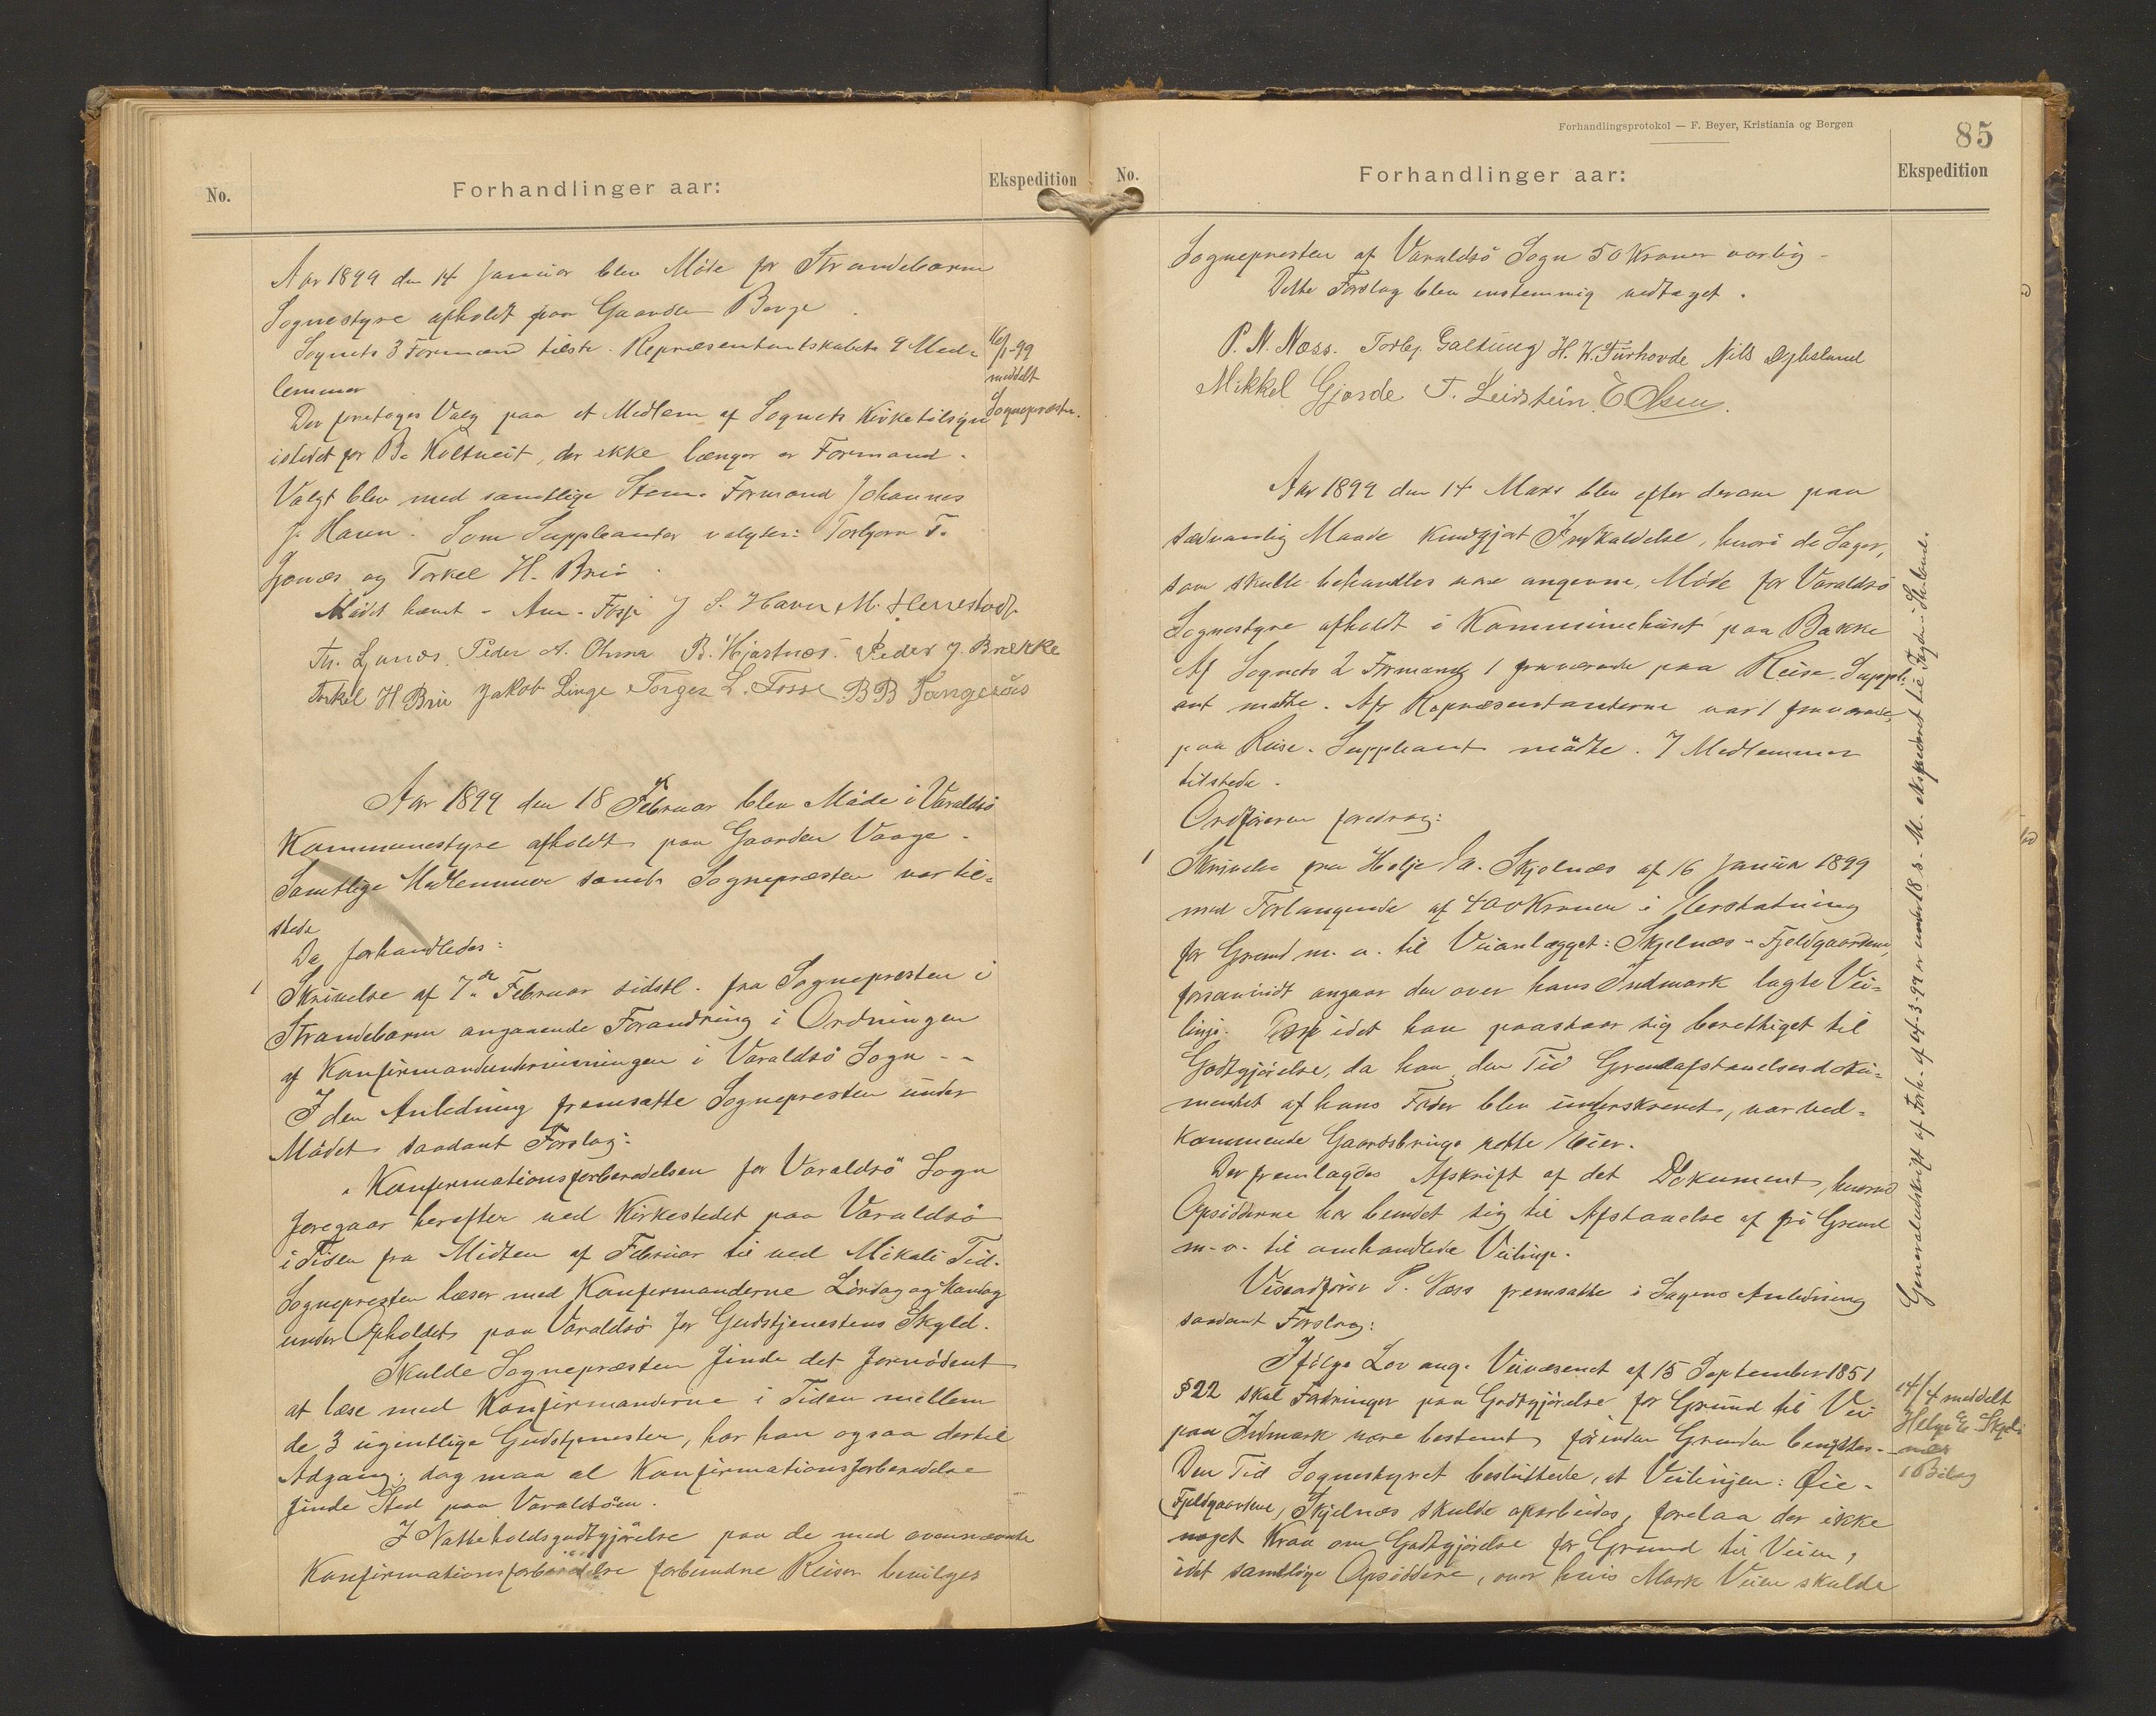 No.
Forhandlinger aar:
Ekspedition
Aar 1899 den 14 Januar blev Møde for Strandebarm
Sognestyre afholdt paa Gaarden Berge
Sognets 3 Formænd tilste. Repræsentantskabets 9 Med-
lemmer
16/1-99
meddelt
Sognepresten.
Der foretoges Valg paa et Medlem af Sognets Kirketilsyn
istedet for B. Koltveit, der ikke længer er Formand.
Valgt blev med samtlige Stem. Formand Johannes
J. Haven. Som Suppleanter valgtes: Torbjørn T.
Ljonæs og Torkel H. Brii
Mødet hævet - Am. Fosse J S. Haven M. Herrestad
Th. Ljonæs. Peder A. Oma B. Hjartnæs. Peder J. Brække
Torkel H Brii Jakob Linge Torger L. Fosse BB Tangerås
Aar 1899 den 18 Februar blev Møde i Varaldsö
Kommunestyre afholdt paa Gaarden Vaage -
Samtlige Medlemmer samt Sognepræsten var til-
stede
Da forhandledes:
1 Skrivelse af 7de Februar sidstl. fra Sognepresten i
Strandebarm angaaende Forandring i Ordningen
af Konfirmandundervisningen i Varaldsö Sogn - -
I den Anledning fremsatte Sognepresten under
Mødet saadant Forslag:
"Konfirmationsforberedelsen for Varaldsö Sogn
foregaar herefter ved Kirkestedet paa Varaldsö
i Tiden fra Midten af Februar til ved Mikali Tid.
Sognepresten læser med Konfirmanderne Lördag og Mandag
under Opholdet paa Varaldsö for Gudstjenestens Skyld.
Skulde Sognepræsten finde det fornödent
at læse med Konfirmanderne i Tiden mellem
de 3 ugentlige Gudstjenester, har han ogsaa dertil
Adgang; dog maa al Konfirmationsforberedelse
finde Sted paa Varaldsöen.
I Natteholdsgodtgjörelse paa de med ovennævnte
Konfirmationsforberedelse forbundne Reiser bevilges
Forhandlingsprotokol — F. Beyer, Kristiania og Bergen
85
No.
Forhandlinger aar:
Ekspedition
Sognepresten af Varaldsö Sogn 50 Kroner aarlig -
Dette Forslag blev enstemmig vedtaget.
P. N. Næss. Torbj. Galtung H. W. Turhovde Nils Dybsland
Mikkel Gjerde T. Leirstein. E Olsen.
Aar 1899 den 14 Mars blev efter derom paa
sædvanlig Maade kundgjort Indkaldelse, hvori de Sager,
som skulle behandles vare angevne, Møde for Varaldsö
Sognestyre afholdt i Kommunehuset paa Bakke
Af Sognets 2 Formænd 1 fraværende paa Reise. Supple-
ant mødte. Af Repræsentanterne var 1 fraværende,
paa Reise. Suppleant mödte. 7 Medlemmer
tilstede.
Ordføreren foredrog:
1 Skrivelse fra Helje E. Skjelnæs af 16 Januar 1899
med Forlangende af 400 Kroner i Erstatning
for Grund m. v. til Veianlægget: Skjelnæs - Fjeldgaardene,
forsaavidt angaar den over hans Indmark lagte Vei-
linje. idet han paastaar sig berettiget til
Godtgjörelse, da han, den Tid Grundafstaaelsesdoku-
mentet af hans Fader blev underskrevet, var ved-
kommende Gaardsbrugs rette Eier.
Der fremlagdes Afskrift af det Dokument, hvorved
Opsidderne har bundet sig til Afstaaelse af fri Grund
m. v. til omhandlede Veilinje.
Viseordfører P. Næss fremsatte i Sagens Anledning
saadant Forslag:
Ifölge Lov ang. Veivæsenet af 15 September 1851
§22 skal Fordringer paa Godtgjörelse for Grund til Vei
paa Indmark være bestemt, förinden Grunden benyttes. -
Den Tid Sognestyret besluttede, at Veilinjen: Øie-
Fjeldgaardene, Skjelnæs skulde oparbeides, forelaa der ikke
noget Krav om Godtgjörelse for Grund til Veien,
idet samtlige Opsiddere, over hvis Mark Veien skulde
Generaludskrift af Forh. af 14-3-99 er under 18 s. M. ekspederet til Fogden i Sönhordl.
14/4 meddelt
Helge E. Skjel-
næs
1 Bilag